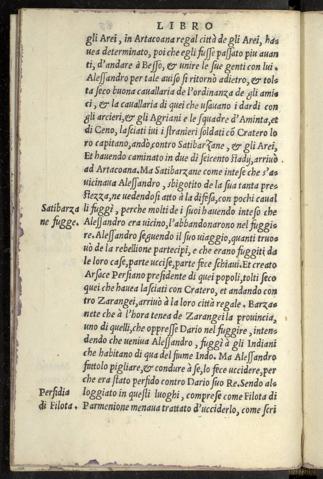 LIBRO
gli Arei, in Artacoana regal città de gli Arei, ha-
uea determinato, poi che egli fusse passato piu auan
ti, d'andare à Besso, & unire le sue genti con lui.
Alessandro per tale auiso si ritornò adietro, & tol-
ta seco buona cauallaria de l'ordinanza de gli ami-
ci, & la cauallaria di quei che usauano i dardi con
gli arcieri, & gli Agriani e le squadre d'Aminta, et
di Ceno, lasciati iui i stranieri soldati cō Cratero lo
ro capitano, andò contro Satibarzane, & gli Arei,
Et hauendo caminato in due dì seicento stadij, arriuò
ad Artacoana. Ma Satibarzane come intese che s'a-
uicinaua Alessandro, sbigotito de la sua tanta pre-
stezza, ne uedendosi atto à la difesa, con pochi caual
Satibarza li fuggì, perche molti de i suoi hauendo inteso che
ne fugge. Alessandro era uicino, l'abbandonarono nel fuggi-
re. Alessandro seguendo il suo uiaggio, quanti truo-
uò de la rebellione partecipi, e che erano fuggiti da
le loro case, parte uccise, parte fece schiaui. Et creato
Arsace Persiano presidente di quei popoli, tolti seco
quei che hauea lasciati con Cratero, et andando con
tro Zarangei, arriuò à la loro città regale. Barza-
nete che à l'hora tenea de Zarangei la prouincia,
uno di quelli, che oppresse Dario nel fuggire, inten-
dendo che ueniua Alessandro, fuggì à gli Indiani
che habitano di qua del fiume Indo. Ma Alessandro
fattolo pigliare, & condure à se, lo fece uccidere, per
che era stato perfido contro Dario suo Re. Sendo al-
Perfidia loggiato in questi luoghi, comprese come Filota di
di Filota. Parmenione menaua trattato d'ucciderlo, come scri